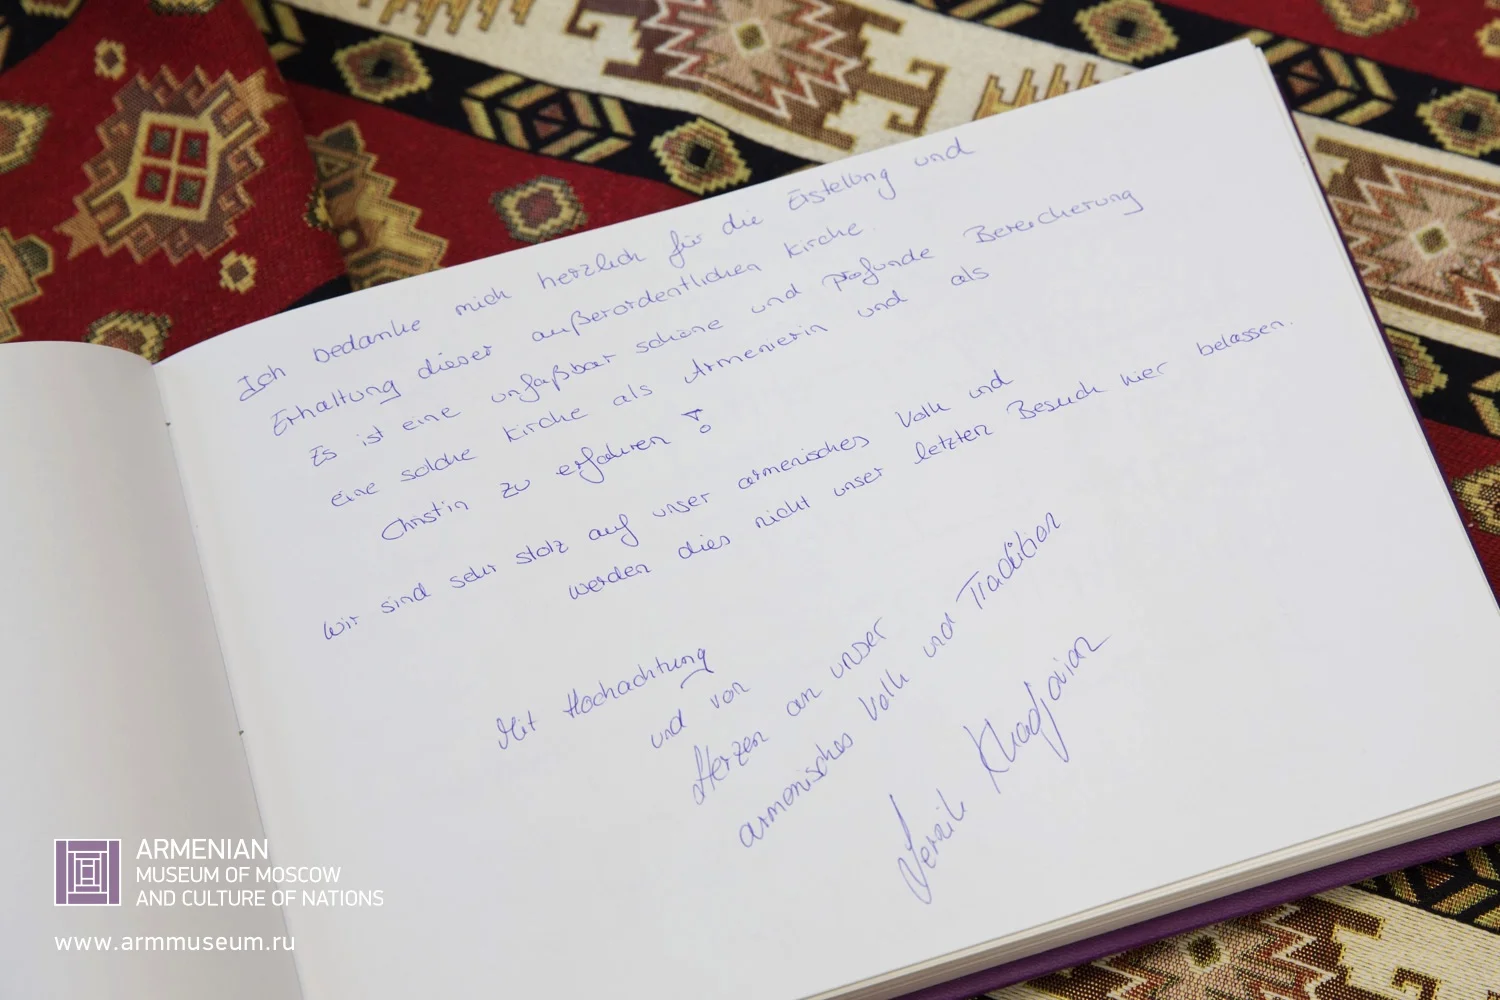 Ich bedanke mich herzlich für die Erstellung und
Erhaltung dieser außerordentlichen Kirche.
Es ist eine unfaßbar schöne und profunde Bereicherung
eine solche Kirche als Armenierin und als
Christin zu erfahren!
Wir sind sehr stolz auf unser armenisches Volk und
werden dies nicht unser letzten Besuch hier belassen.
Mit Hochachtung
und von
Herzen an unser
armenisches Volk und Tradition
Khadjoian
ARMENIAN
MUSEUM OF MOSCOW
AND CULTURE OF NATIONS
www.armmuseum.ru